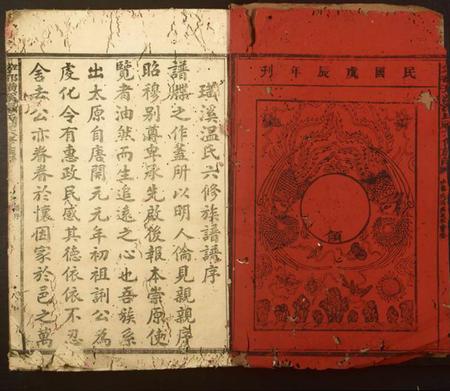 民國庚辰年刊
領
璜溪溫氏六修族譜譜序
譜牒之作蓋所以明人倫見親親序
昭穆別尊卑承先啟後報本崇原使
覽者油然而生追遠之心也吾族系
出太原自唐開元元年初祖訓公為
虔化令有惠政民感其德依依不忍
舍去公亦眷眷於懷因家於邑之萬